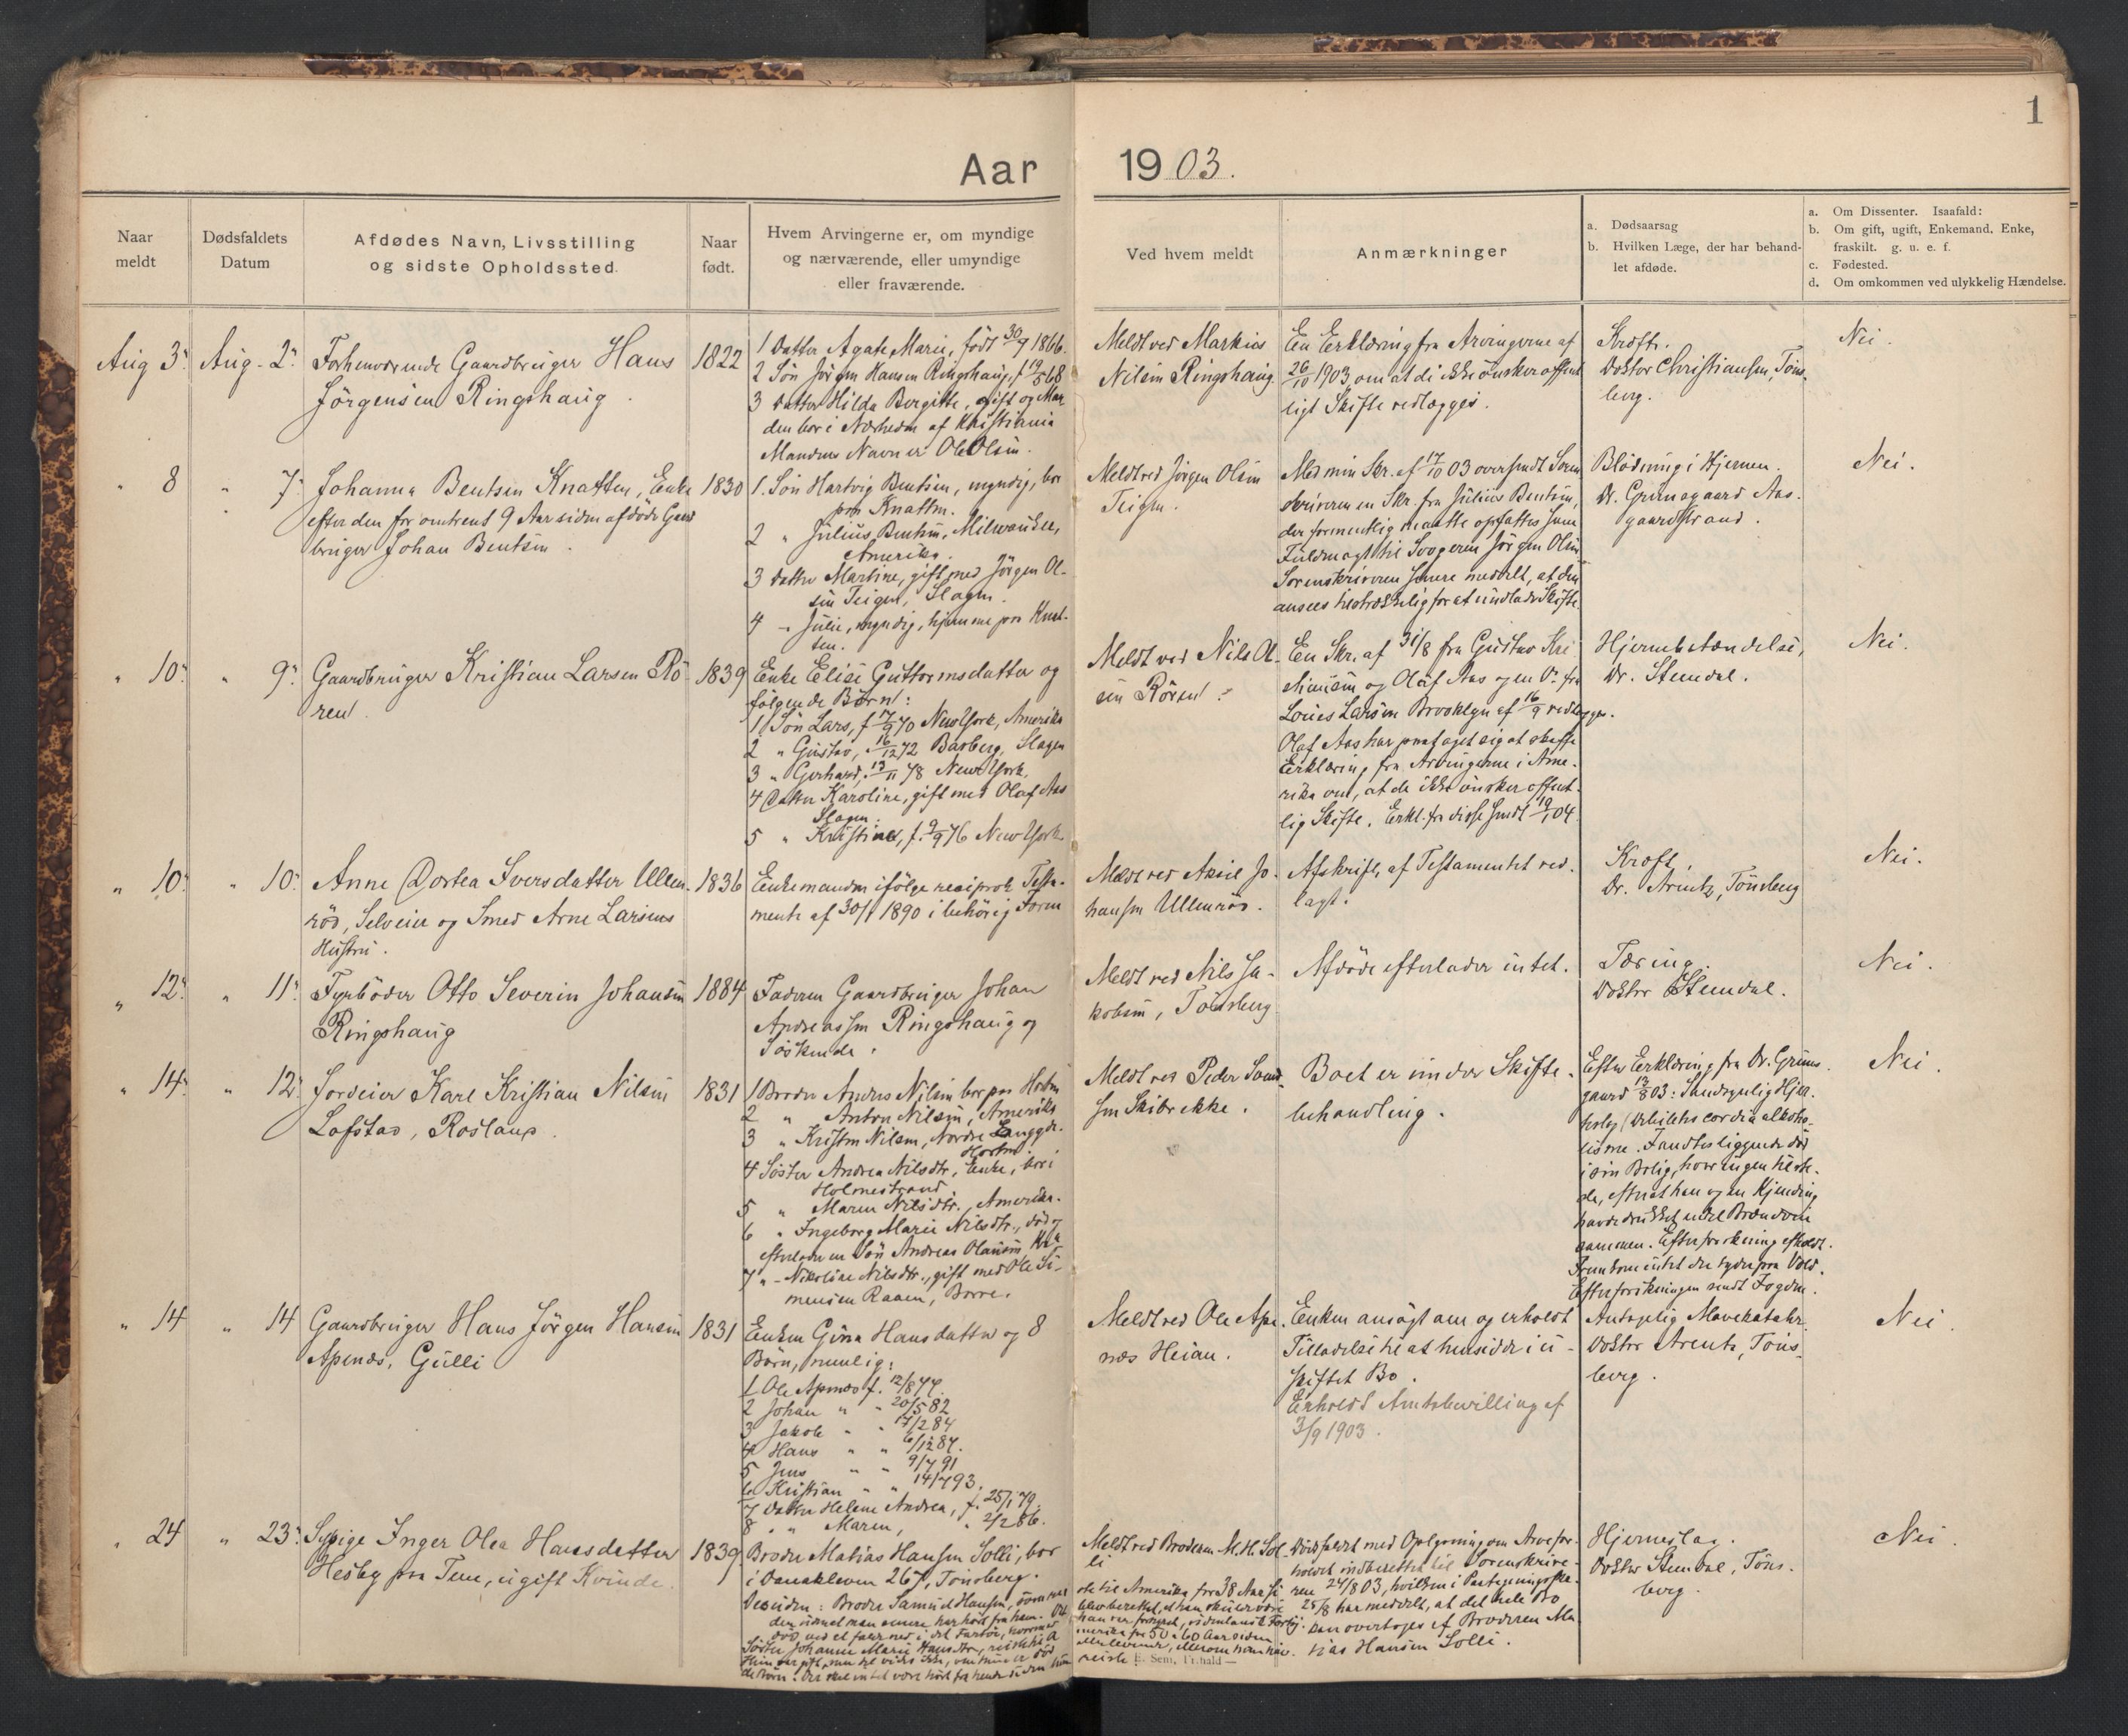 1
Aar 1903.
Naar
meldt
Dødsfaldets
Datum
Afdødes Navn, Livsstilling
og sidste Opholdssted.
Naar
født.
Hvem Arvingerne er, om myndige
og nærværende, eller umyndige
eller fraværende.
Ved hvem meldt
Anmærkninger
a. Dødsaarsag
b. Hvilken Læge, der har behand-
let afdøde.
a. Om Dissenter. Isaafald:
b. Om gift, ugift, Enkemand, Enke,
fraskilt. g. u. e. f.
c. Fødested.
d. Om omkommen ved ulykkelig Hændelse.
Aug 3. Aug. 2.
Forhenværende Gaardbruger Hans
Jörgensen Ringshaug.
1822
1 Datter Agate Marie, født 30/9 1866.
2 Søn Jörgen Hansen Ringshaug, f 19/8 68
3 Datter Hilda Bergitte, gift og Man
den bor i Nærheden af Kristiania
Mandens Navn er Ole Olsen.
Meldt ved Markus
Nilsen Ringshaug
En Erklæring fra Arvingerne af
26/10 1903, om at de ikke ønsker offent
ligt Skifte vedlægges.
Kræft.
Doktor Christiansen, Tøns-
berg.
Nei.
" 8 " 7.
Johanna Bentsen Knatten, Enke
efter den for omtrent 9 Aar siden afdøde Gaard
bruger Johan Bentsen.
1830
1. Søn Hartvig Bentsen, myndig, bor
paa Knatten.
2 " Julius Bentsen, Milwaukee,
Amerika.
3 Datter Martine, gift med Jörgen Ol-
sen Teigen, Slagen.
4 " Julie, myndig, hjemme paa Knat-
ten.
Meldt ved Jörgen Olsen
Teigen.
Med min Skr. af 17/10 03 oversendt Soren
skriveren en Skr. fra Julius Bentsen,
der formentlig maatte opfattes som
Fuldmagt til Svogeren Jörgen Olsen
Sorenskriveren senere meddelt, at den
ansees tilstrækkelig for at undlade Skifte
Blødning i Hjernen.
Dr. Grønsgaard Aas-
gaardstrand.
Nei.
" 10. " 9.
Gaardbruger Kristian Larsen Rö-
ren.
1839
Enke Elise Guttormsdatter og
følgende Børn:
1 Søn Lars, f 17/9 70 New York, Amerika
2 " Gustav, 16/12 72 Basberg, Slagen
3 " Gerhard, 13/11 78 New York.
4 Datter Karoline, gift med Olaf Aas
Slagen.
5 " Kristine, f. 9/9 76 New York
Meldt ved Nils Ol-
sen Rören.
En Skr. af 31/8 fra Gustav Kri
stiansen og Olaf Aas og en Do fra
Louis Larsen Brooklyn af 16/9 vedlægges.
Olaf Aas har paataget sig at skaffe
Erklæring fra Arvingerne i Ame-
rika om, at de ikke ønsker offent-
lig Skifte. Erkl. fra disse sendt 19/1 04.
Hjernebetændelse,
Dr. Stendal.
Nei.
" 10. " 10.
Anne Dortea Iversdatter Ullen-
röd, Selveier og Smed Arne Larsens
Hustru.
1836
Enkemanden ifølge reciprok Testa-
mente af 30/1 1890 i behørig Form
Meldt ved Aksel Jo-
hansen Ullenröd.
Afskrift af Testamentet ved-
lagt.
Kræft.
Dr. Arentz, Tönsberg
Nei.
" 12. " 11.
Fyrböder Otto Severin Johansen
Ringshaug
1884
Faderen Gaardbruger Johan
Andreassen Ringshaug og
Søskende.
Meldt ved Nils Ja-
kobsen, Tönsberg
Afdøde efterlader intet.
Tæring.
Doktor Stendal.
Nei.
" 14. " 12.
Jordeier Karl Kristian Nilsen
Lofstad, Rosland.
1831
1 Broder Anders Nilsen bor paa Horten
2 " Anton Nilsen, Amerika
3 " Kristen Nilsen, Nordre Langgd.
Horten
4 Søster Andrea Nilsdtr., Enke, bor i
Holmestrand.
5 " Maren Nilsdtr., Amerika.
6 " Ingeborg Marie Nilsdtr., død og
efterlader en Søn Andreas Olausen, Kra
7 " Nikoline Nilsdtr., gift med Ole Si-
mensen Raaen, Borre.
Meldt ved Peder Sand-
sen Skibrekke.
Boet er under Skifte-
behandling.
Efter Erklæring fra Dr. Gröns-
gaard 13/8 03: Sandsynlig Hjer-
cordia alkoho-
lisme. Fandtes liggende død
i sin Bolig, hvor ingen tilste-
de, efter at han og en Kjending
havde drukket endel Brændevin
sammen. Efterforskning afholdt.
Fremkom intet der tyder paa Vold.
Efterforskningen sendt Fogden.
Nei.
" 14 " 14
Gaardbruger Hans Jörgen Hansen
Apenæs, Gulli
1831
Enken Gina Hansdatter og 8
Børn, nemlig:
1 Ole Apenæs f. 12/8 77.
2 Johan " " 20/5 82
3 Jakob " " 17/2 84
4 Hans " " 6/12 87.
5 Jens " " 9/7 91
6 Kristian " " 14/7 93.
7 Datter Helene Andrea, f. 25/1 79.
8 " " Maren, " 2/2 86.
Meldt ved Ole Ape-
næs Heian.
Enken ansøgt om og erholdt
Tilladelse til at hensidde i u-
skiftet Bo.
Erholdt Amtsbevilling af
3/9 1903.
Antagelig Mavekatahr.
Doktor Arentz, Töns-
berg.
Nei.
" 24 " 23.
Sypige Inger Olea Hansdatter
Hesby paa Tem, ugift Kvinde.
1839
Broder Matias Hansen Solli, bor
i Danakleven 267, Tönsberg.
Desuden: Broder Samuel Hansen,
den siden at man senere har hört fra ham.
död ved et fald ned i det Fartøi, hvormed
Søster Johanne Marie Hansdtr., reiste til A
Meldt ved Broderen M. H. Sol-
li
ste til Amerika for 38 Aar si
merika for 50 à 60 Aar siden
reiste.
Dødsfaldet med Oplysning om Arvefor-
holdet indberettet til Sorenskrive-
ren 24/8 03, hvilken i Paategningsskr.
25/8 har meddelt, at det hele Bo
kan overtages af Broderen Ma-
tias Hansen Solli.
Hjerneslag.
Doktor Stendal, Töns-
berg.
Nei
E. Sem, Fr.hald —